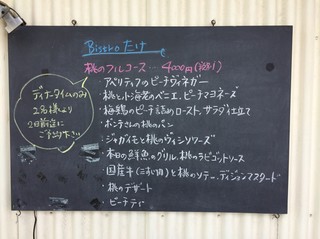 Bistro たけ
桃のフルコース… 4000円(税別)
・アペリティフのピーチヴィネガー
・桃と小海老のベニエ、ピーチマヨネーズ
・梅鶏のピーチ詰めロースト、サラダ仕立て
・ポンテさんの桃のパン
・ジャガイモと桃のヴィシソワーズ
・本日の鮮魚のグリル、桃のラビゴットソース
・国産牛(ミすじ肉)と桃のソテー、ディジョンマスタード
・桃のデザート
・ピーチティ
ディナータイムのみ
2名様より
2日前迄に
ご予約下さい